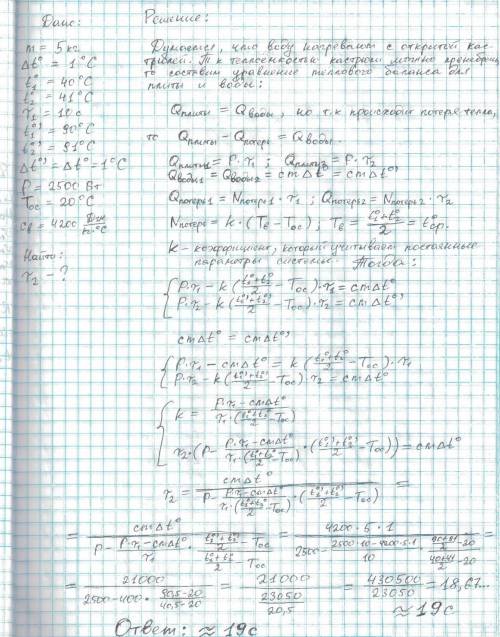 Дано:
m = 5 кг
Δt° = 1°C
t₁° = 40°C
t₂° = 41°C
τ₁ = 10 с
t₁°' = 90°C
t₂°' = 91°C
Δt°' = Δt° = 1°C
P = 2500 Вт
Tос = 20°C
cв = 4200 Дж/кг·°C
Найти:
τ₂ - ?
Решение:
Думается, что воду нагревают с открытой кас-
трюлей. Т.к теплоемкостью кастрюли можно пренебречь,
то составим уравнение теплового баланса для
плиты и воды:
Qплиты = Qводы, но т.к происходит потеря тепла,
то Qплиты - Qпотерь = Qводы.
Qплиты1 = P·τ₁ ; Qплиты2 = P·τ₂
Qводы1 = Qводы2 = cmΔt° = cmΔt°'
Qпотерь1 = Nпотерь1 · τ₁ ; Qпотерь2 = Nпотерь2 · τ₂
Nпотерь = k·(Tв - Tос) ; Tв = (t₁°+t₂°)/2 = t°ср.
k - коэффициент, который учитывает постоянные
параметры системы. Тогда:
{ P·τ₁ - k((t₁°+t₂°)/2 - Tос)·τ₁ = cmΔt°
P·τ₂ - k((t₁°'+t₂°')/2 - Tос)·τ₂ = cmΔt°'
cmΔt° = cmΔt°'
{ P·τ₁ - cmΔt° = k((t₁°+t₂°)/2 - Tос)·τ₁
P·τ₂ - k((t₁°'+t₂°')/2 - Tос)·τ₂ = cmΔt°
{ k = (P·τ₁ - cmΔt°)/(τ₁·((t₁°+t₂°)/2 - Tос))
τ₂·(P - (P·τ₁ - cmΔt°)/(τ₁·((t₁°+t₂°)/2 - Tос))·((t₁°'+t₂°')/2 - Tос)) = cmΔt°
τ₂ = cmΔt°/(P - (P·τ₁ - cmΔt°)/(τ₁·((t₁°+t₂°)/2 - Tос))·((t₁°'+t₂°')/2 - Tос)) =
= cmΔt°/(P - (P·τ₁ - cmΔt°)/τ₁ · ((t₁°'+t₂°')/2 - Tос)/((t₁°+t₂°)/2 - Tос)) = 4200·5·1/(2500 - (2500·10-4200·5·1)/10 · ((90+91)/2 - 20)/((40+41)/2 - 20)) =
= 21000/(2500-400·(90,5-20)/(40,5-20)) = 21000/(23050/20,5) = 430500/23050 = 18,67...
≈ 19с
Ответ: ≈ 19с